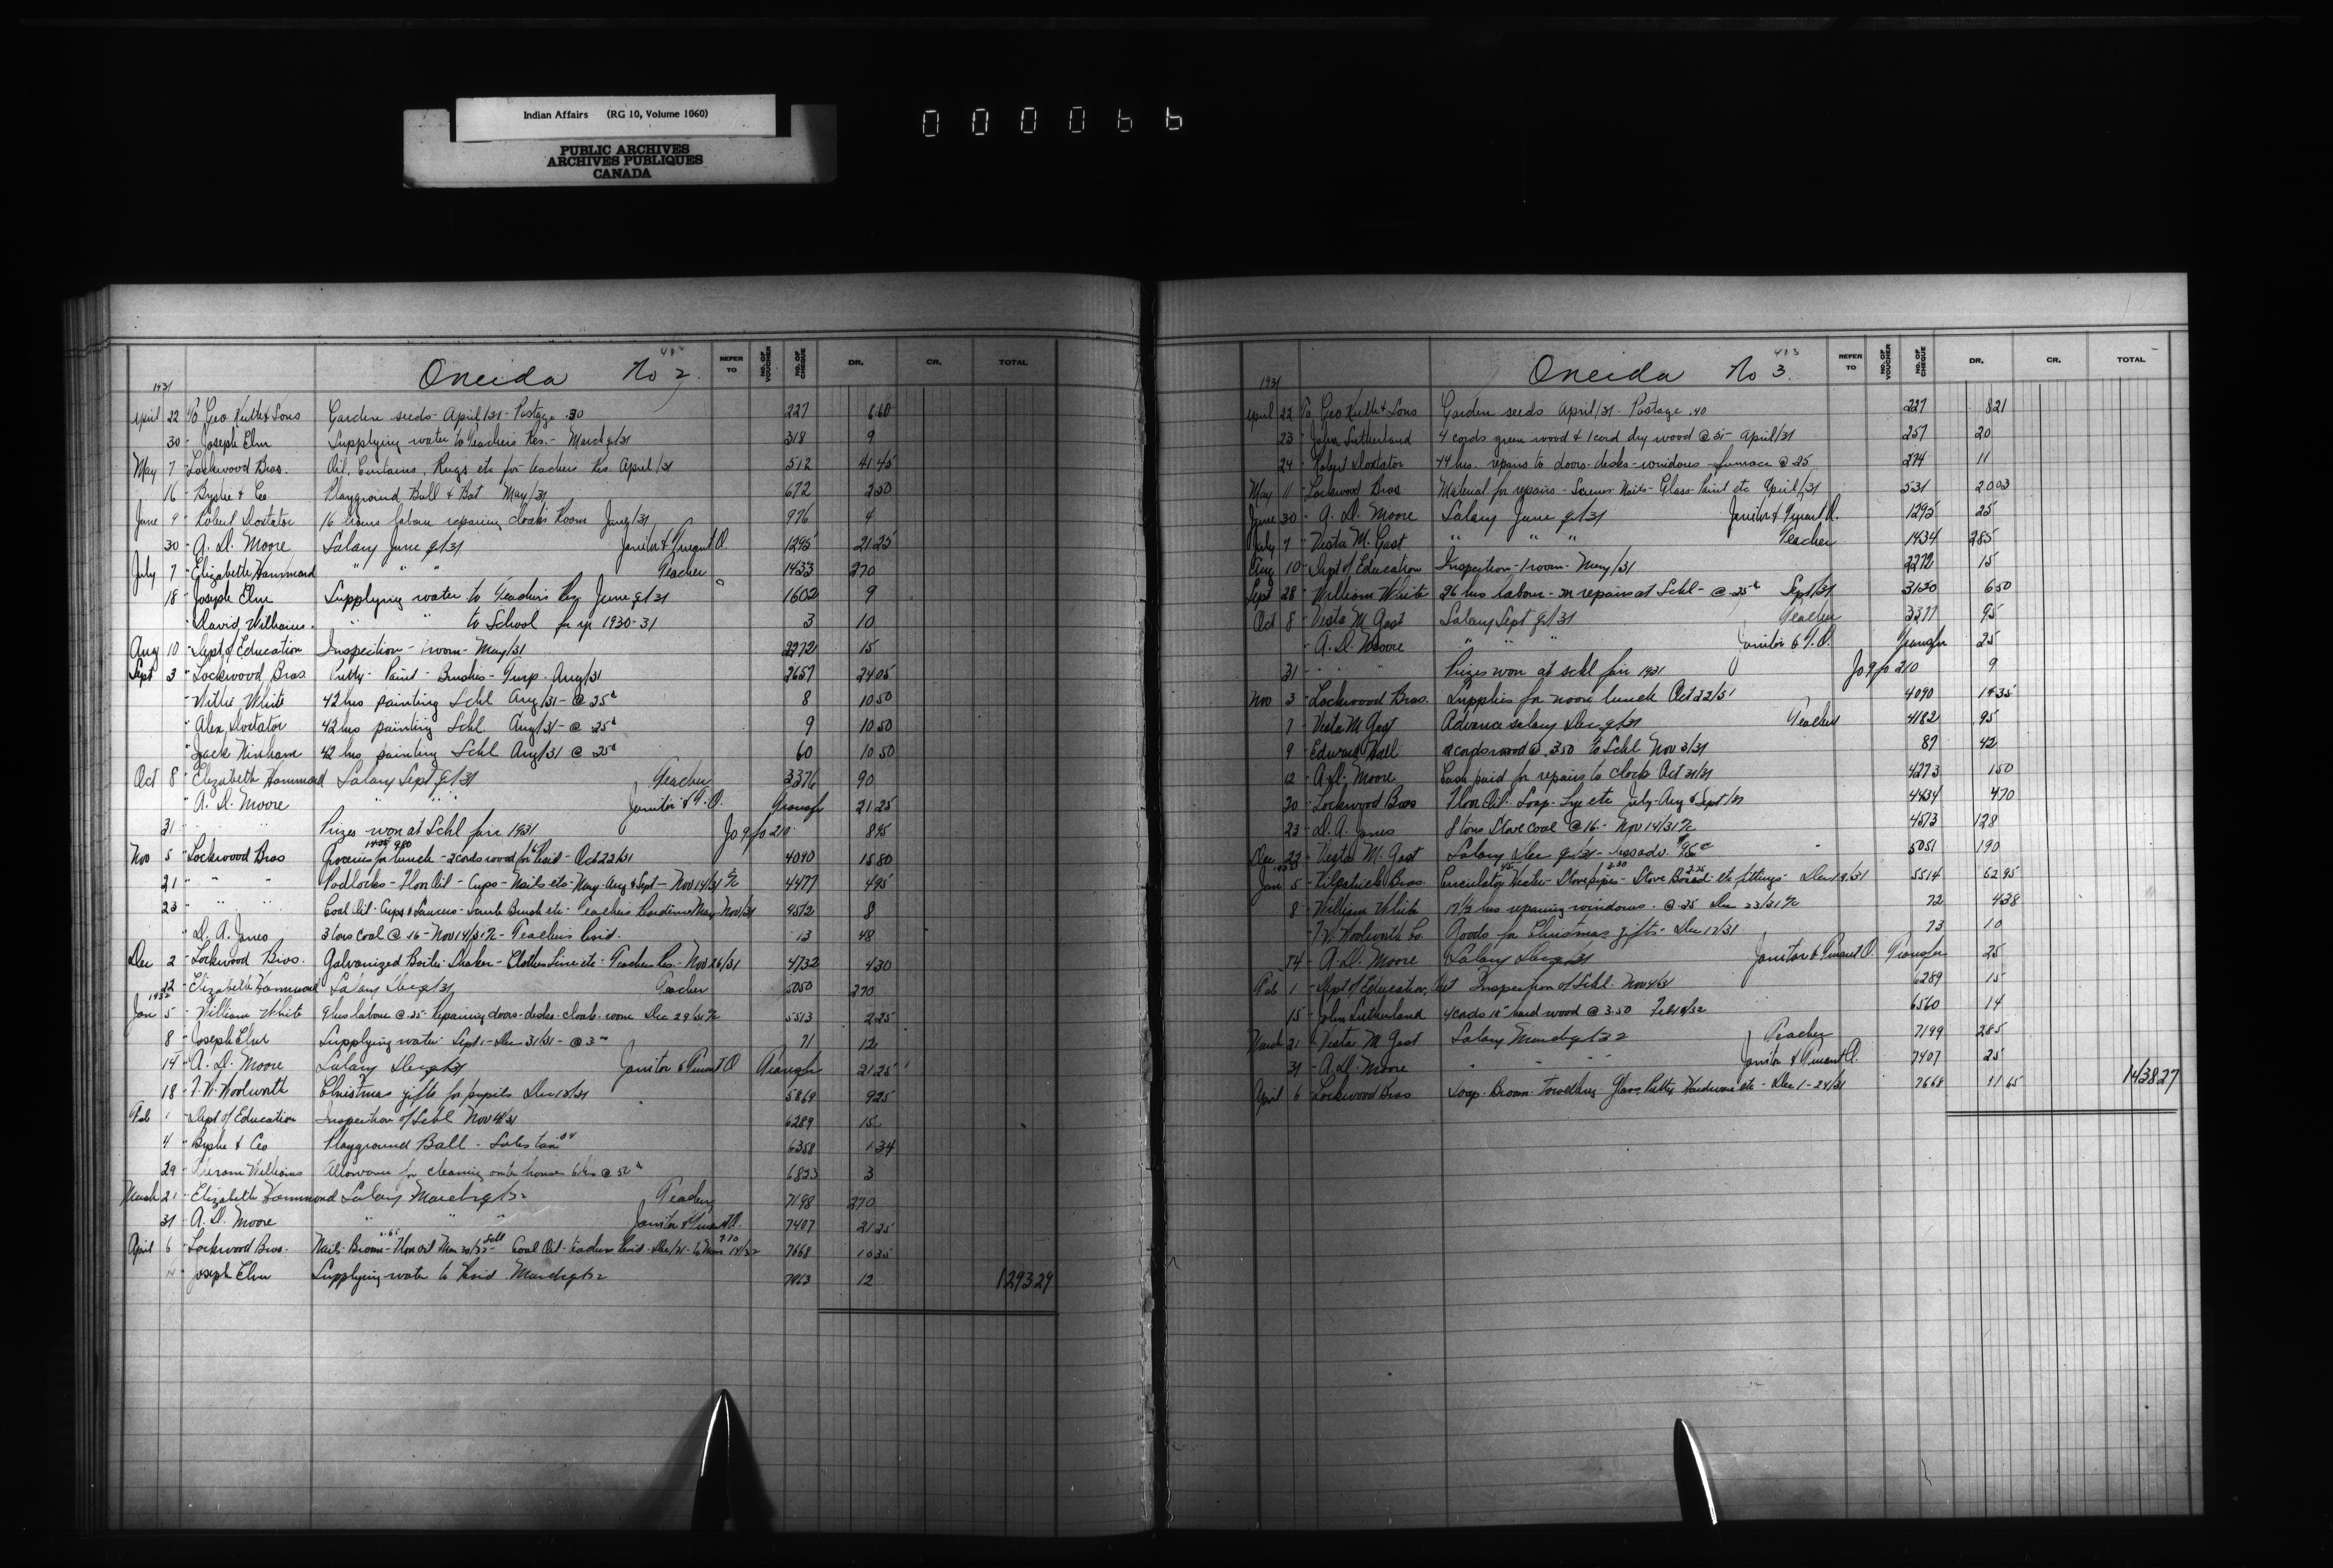 Indian Affairs (RG 10, Volume 1060)
PUBLIC ARCHIVES
ARCHIVES PUBLIQUES
CANADA
000066
Oneida No 2.
REFER TO NO. OF VOUCHER NO. OF CHEQUE DR. CR. TOTAL
1931
April 22 To Geo Keith & Sons Garden seeds - April/31 - Postage .30 227 6 60
30 " Joseph Elm Supplying water to Teachers Res. - March q/31 318 9
May 7 " Lockwood Bros. Oil, Curtains, Rugs etc for teachers Res April/31 512 41 45
16 " & Co Playground Ball & Bat May/31 672 2 50
June 9 " Robert Doxtator 16 hours labour repairing cloak Room June/31 976 4
30 " A. D. Moore Salary June q/31 Janitor & Truant O. 1295 21 25
July 7 " Elizabeth Hammond " " " Teacher 1433 270
18 " Joseph Elm Supplying water to Teachers Res. June q/31 1602 9
" David Williams " " to School for yr 1930-31 3 10
Aug 10 " Dept of Education Inspection - 1 room - May/31 2272 15
Sept 3 " Lockwood Bros Putty - Paint - Brushes - Turp. Aug/31 2657 24 05
" Willie White 42 hrs painting Schl Aug/31 - @ 25¢ 8 10 50
" Alex Doxtator 42 hrs painting Schl Aug/31 - @ 25¢ 9 10 50
" Jack Ninham 42 hrs painting Schl Aug/31 @ 25¢ 60 10 50
Oct 8 " Elizabeth Hammond Salary Sept q/31 Teacher 3376 90
" A. D. Moore " " " Janitor & T.O. Transfr 21 25
31 " " Prizes won at Schl fair 1931 Jo 9 fo 210 8 95
Nov 5 " Lockwood Bros Groceries for lunch - 2 cords wood for Resid - Oct 22/31 4090 15 80
21 " " " Padlocks - Floor Oil - Cups - Nails etc - May - Aug & Sept - Nov 14/31 4477 4 95
23 " " " Coal Oil - Cups & Saucers - Scrub Brush etc - Teachers Residence May - Nov/31 4572 8
" D. A. Jones 3 tons coal @ 16 - Nov 14/31 - Teachers Resid. 13 48
Dec 2 " Lockwood Bros. Galvanized Boiler - Shaker - Clothes Line etc - Teachers Res. - Nov 26/31 4732 4 30
22 " Elizabeth Hammond Salary Dec q/31 Teacher 5050 270
1932
Jan 5 " William White 9 hrs labour @ .25 - Repairing doors - desks - cloak - room Dec 29/31 5513 2 25
8 " Joseph Elm Supplying water - Sept 1 - Dec 31/31 - @ 3 71 12
14 " A. D. Moore Salary Dec q/31 Janitor & Truant O Transfr 21 25
18 " F. W. Woolworth Christmas gifts for pupils Dec /31 5869 9 25
Feb 1 " Dept of Education Inspection of Schl Nov 4/31 6289 15
4 " & Co Playground Ball - Sales tax 04 6358 1 34
29 " Hiram Williams Allowance for cleaning outer house 6 hrs @ 50¢ 6823 3
March 21 " Elizabeth Hammond Salary March q/32 Teacher 7198 270
31 " A. D. Moore " " " Janitor & Truant O. 7407 21 25
April 6 " Lockwood Bros. Nails - Broom - Floor oil Mar 30/32 - Schl Coal Oil - teachers Resid - Dec/31 - to Mar 14/32 7668 10 35
" Joseph Elm Supplying water to Resid March q/32 12 1293 29
Oneida No 3.
REFER TO NO. OF VOUCHER NO. OF CHEQUE DR. CR. TOTAL
1931
April 22 To Geo Keith & Sons Garden seeds April/31 - Postage .40 227 8 21
23 " John Sutherland 4 cords green wood & 1 cord dry wood @ April/31 257 20
24 " Robert Doxtator 44 hrs. repairs to doors - desks - windows - furnace @ 25 274 11
May 11 " Lockwood Bros Material for repairs - Screws - Nails - Glass - Paint etc April/31 531 20 03
June 30 " A. D. Moore Salary June q/31 Janitor & Truant O. 1295 25
July 7 " Vesta M. Gast " " " Teacher 1434 285
Aug 10 " Dept of Education Inspection - 1 room - May/31 2272 15
Sept 28 " William White 26 hrs labour - on repairs at Schl - @ 25¢ Sept/31 3120 6 50
Oct 8 " Vesta M Gast Salary Sept q/31 Teacher 3377 95
" A. D. Moore " " Janitor & T.O. Transfr 25
31 " " Prizes won at schl fair 1931 Jo 9 fo 210 9
Nov 3 " Lockwood Bros. Supplies for noon lunch Oct 22/31 4090 14 35
7 " Vesta M Gast Advance salary Dec q/31 Teacher 4182 95
9 " Edward Hall cords wood @ 3.50 to Schl Nov 3/31 87 42
12 " A. D. Moore Cash paid for repairs to clock Oct 31/31 4273 1 50
20 " Lockwood Bros Floor Oil - Soap - Lye etc July - Aug & Sept/31 4434 4 70
23 " D. A. Jones 8 tons Stove coal @ 16 - Nov 14/31 4573 128
Dec 22 " Vesta M. Gast Salary Dec q/31 - less adv. $95 " 5051 190
1932
Jan 5 " Kilpatrick Bros. Circulator Heater - Stovepipes - Stove Board - etc fittings - Dec 19/31 5514 62 95
8 " William White 17½ hrs repairing windows. @ 25 Dec 23/31 72 4 38
" F. W. Woolworth Co. Goods for Christmas gifts - Dec 17/31 73 10
14 " A. D. Moore Salary Dec q/31 Janitor & Truant O. Transfr 25
Feb 1 " Dept of Education, Inspection of Schl. Nov 4/31 6289 15
15 " John Sutherland 4 cords hard wood @ 3.50 Feb /32 6560 14
March 21 " Vesta M Gast Salary March q/32 Teacher 7199 285
31 " A. D. Moore " " " Janitor & Truant O. 7407 25
April 6 " Lockwood Bros Soap - Broom - Towelling - Glass, Putty Hardware etc - Dec 1 - 24/31 7668 11 65 1438 27